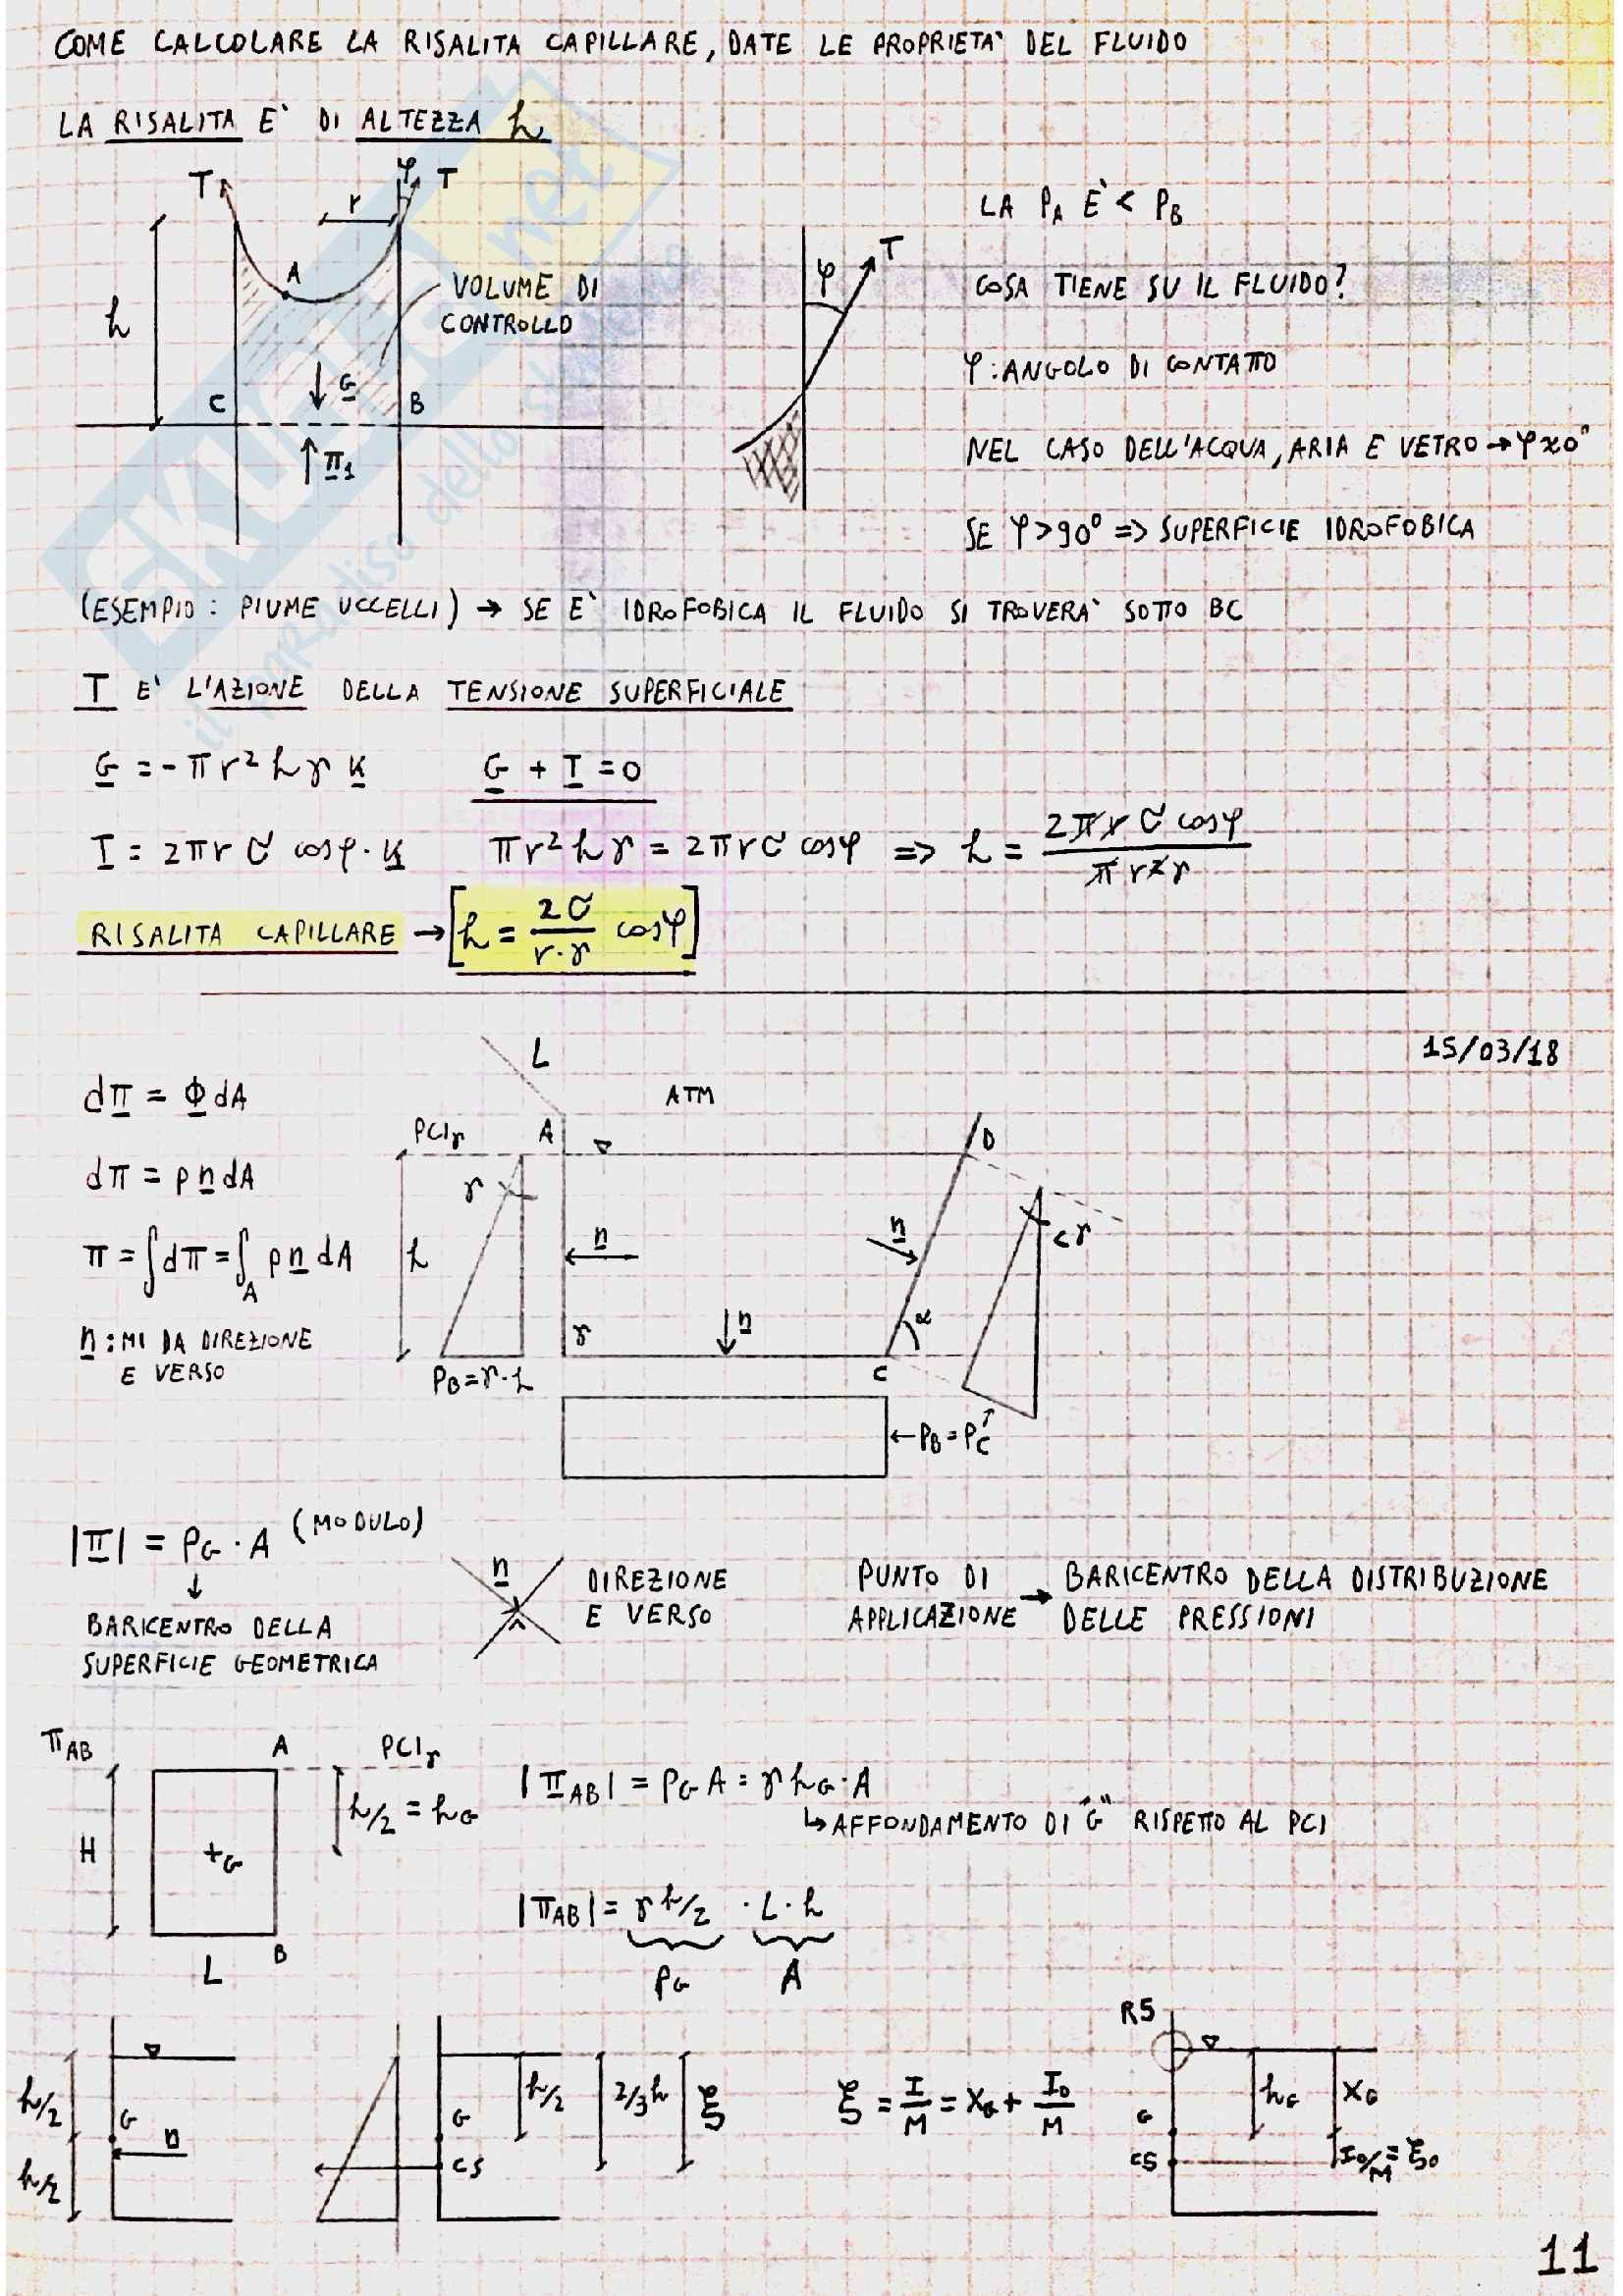 COME CALCOLARE LA RISALITA CAPILLARE, DATE LE PROPRIETA' DEL FLUIDO
LA RISALITA E' DI ALTEZZA h
T
φ
T
r
A
h
VOLUME DI
CONTROLLO
G
C
B
π1
T
φ
LA PA E' < PB
COSA TIENE SU IL FLUIDO?
φ: ANGOLO DI CONTATTO
NEL CASO DELL'ACQUA, ARIA E VETRO → φ≈0°
SE φ>90° => SUPERFICIE IDROFOBICA
(ESEMPIO: PIUME UCCELLI) → SE E' IDROFOBICA IL FLUIDO SI TROVERA' SOTTO BC
T E' L'AZIONE DELLA TENSIONE SUPERFICIALE
G = -πr²hγ K
G + T = 0
T = 2πr σ cosφ · K
πr²hγ = 2πrσ cosφ => h = 2πrσ cosφ / πr²γ
RISALITA CAPILLARE → [h = 2σ / r·γ cosφ]
15/03/18
dπ = Φ dA
dπ = p n dA
π = ∫dπ = ∫A p n dA
n: MI DA DIREZIONE
E VERSO
L
ATM
PCIγ
A
D
γ
h
n
n
<γ
n
α
γ
PB = γ·h
C
← PB = PC
|π| = PG · A (MODULO)
BARICENTRO DELLA
SUPERFICIE GEOMETRICA
n
DIREZIONE
E VERSO
PUNTO DI
APPLICAZIONE
→
BARICENTRO DELLA DISTRIBUZIONE
DELLE PRESSIONI
πAB
A
PCIγ
h/2 = hG
H
+G
L
B
|πAB| = PG A = γ hG · A
↳ AFFONDAMENTO DI "G" RISPETTO AL PCI
|πAB| = γ h/2 · L · h
PG
A
h/2
h/2
G
n
G
CS
h/2
2/3h
ξ
ξ = I/M = XG + I0/M
RS
G
CS
hG
XG
I0/M = ξ0
11
SKUOLA.net
il paradiso dello studente